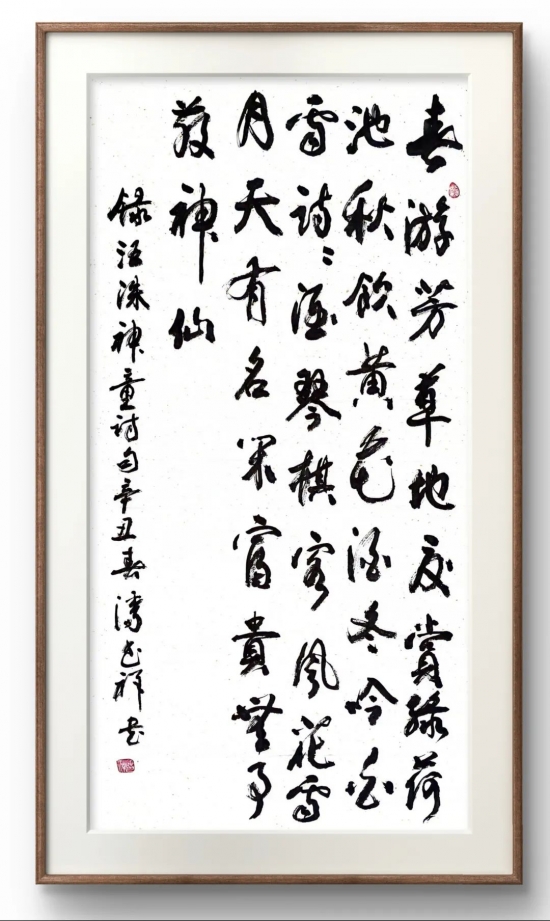 春游芳草地夏賞緑荷
池秋飲黄花酒冬吟白
雪诗々酒琴棋客風花雪
月天有名閑富貴無事
散神仙
録汪洙神童诗句辛丑春潘祥书